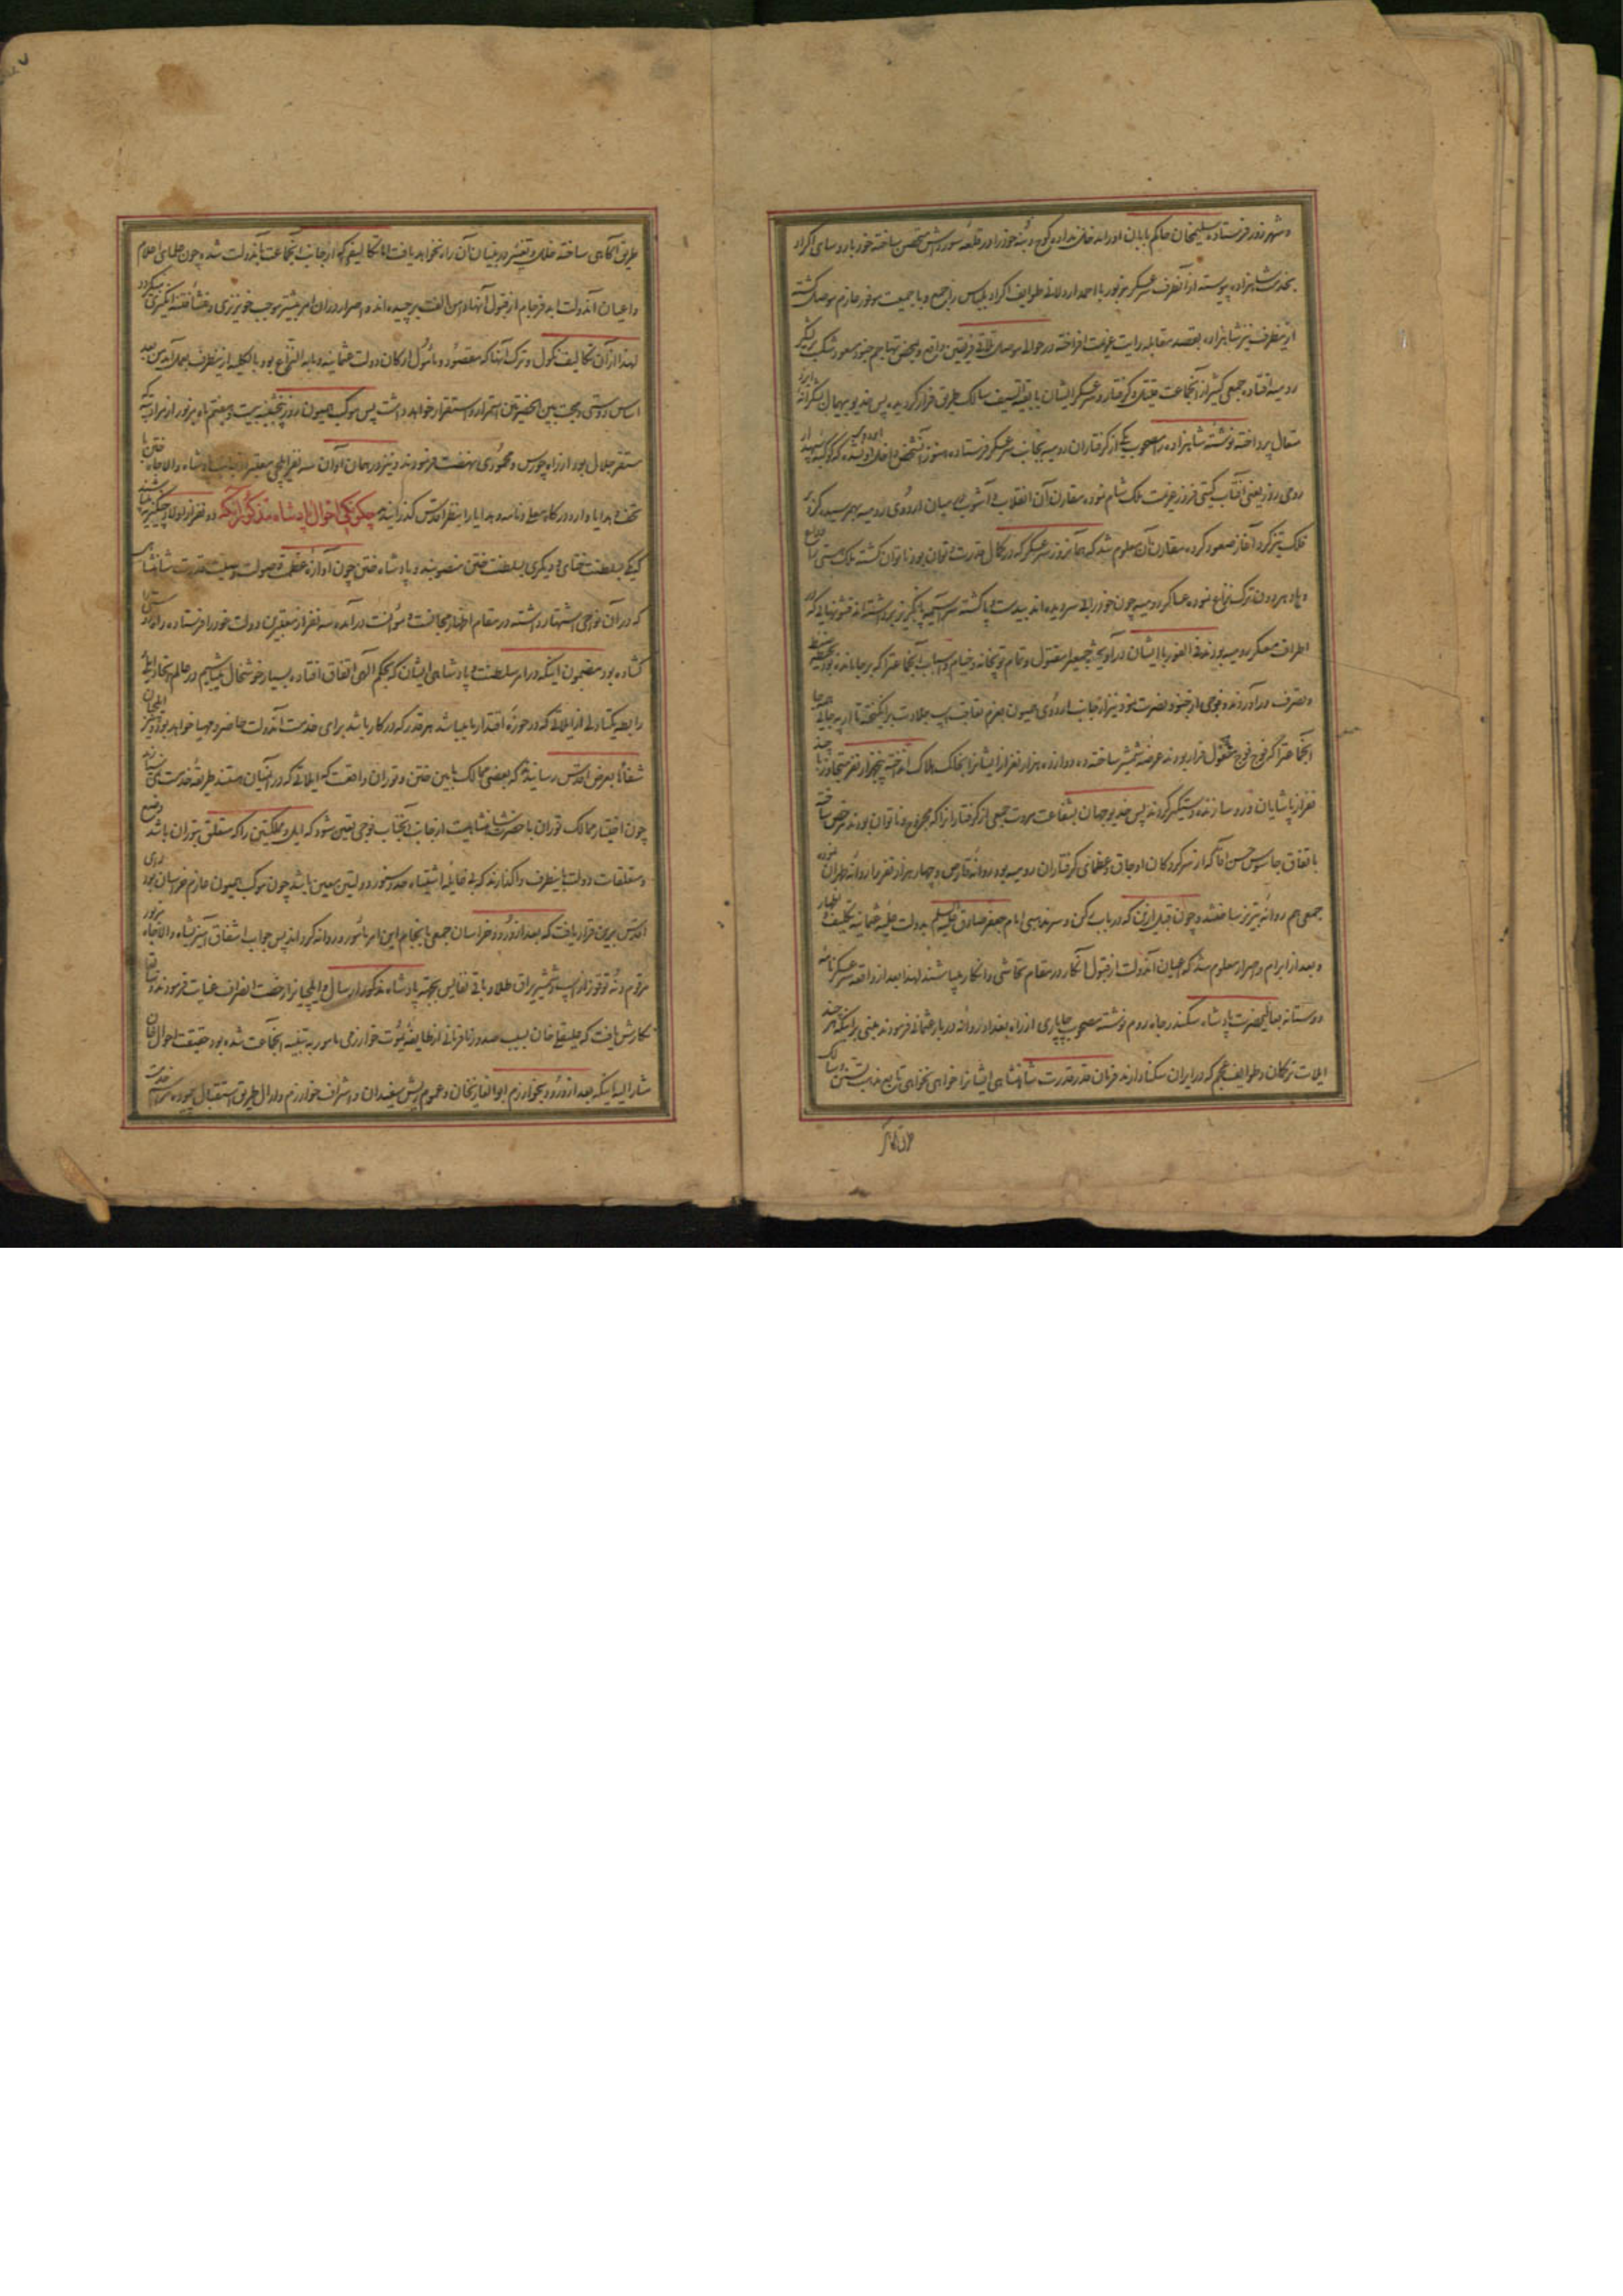 و شهرزور فرستاده سلیمخان حاکم بابان او را بد خانه نداده کوچ و بنه خود را در قلعه سورداش متحصن ساخته خود با روسای اکراد
بخدمت شاهزاده پیوسته از آنطرف سرعسکر مزبور با احمد اردلانی طوایف اکراد بلباس را جمع و با جمعیت موفور عازم موصل گشته
از ینطرف نیز شاهزاده بقصد مقابله رایت عزیمت افراخته در حوالی موصل تلاقی فریقین واقع و بمحض تهاجم جنود مسعود شکست بر لشکر
رومیه افتاده جمعی کثیر از آنجماعت قتیل و گرفتار و سرعسکر ایشان با بقیة السیف سالک طریق فرار گردیده پس خدیو بیهمال بشکرانه ایزد
متعال پرداخته نوشته شاهزاده را مصحوب یکی از گرفتاران رومیه بجانب سرعسکر فرستاده هنوز آنشخص داخل اردو نشده که کوکبه سپهدار
رومی روز یعنی آفتاب گیتی فروز عزیمت ملک شام نموده مقارن آن انقلاب و آشوب در میان اردوی رومیه بهم رسیده گرد بر
فلک تیزگرد آغاز صعود کرد مقارن آن معلوم شد که همانروز سرعسکر که در کمال قدرت و توان بود ناتوان گشته ملک هستی را وداع
و عساکر رومیه چون خود را بی سر دیده اند بیدست و پا گشته سراسیمه پا بگریز برداشته اند قشونهایی که در
اطراف معسکر رومیه بودند فی الفور با ایشان درآویخته جمعی را مقتول و تمام توپخانه و خیام و اسباب آنجماعت را که بر جا مانده بود بحیطه ضبط
و تصرف درآوردند و فوجی از جنود نصرت نمود نیز از جانب اردوی همیون بعزم تعاقب اسب جلادت برانگیخته تا آرپه چایی همه جا
آنجماعت را که فوج فوج مشغول فرار بودند عرضه شمشیر ساخته ده دوازده هزار نفر از ایشانرا بخاک هلاک انداخته پنجهزار نفر متجاوز با چند
نفر از پاشایان و روسا زنده دستگیر کردند پس خدیو جهان بشفاعت مروت جمعی از گرفتارانرا که مجروح و ناتوان بودند مرخص ساخته
باتفاق جاموس حسن آقا که از سرکردگان اوجاق و عظمای گرفتاران رومیه بود روانه قارص و چهار هزار نفر را روانه طهران نموده
جمعی هم روانه تبریز ساختند و چون قبل ازین که در باب رکن و سر مذهبی امام جعفر صادق علیه السلم بدولت علیه عثمانیه تکلیف و اظهار
و بعد از ابرام و اصرار معلوم شد که اعیان آندولت از قبول آن کار در مقام تحاشی و انکار میباشند لهذا بعد از واقعه سرعسکر نامه
دوستانه باعلیحضرت پادشاه سکندر جاه روم نوشته مصحوب چاپاری از راه بغداد روانه دربار عثمانی فرمودند مبنی بر اینکه هر چند
ایلات ترکان و طوایف عجم که در ایران سکنا دارند فرمان قدر قدرت شاهنشاهی ایشانرا خواهی نخواهی تابع مذهب تسنن سالک
طریق آگاهی ساخته خلل و تغییر در بنیان آن راه نخواهد یافت اما تکالیفی که از جانب آنجماعت بآندولت شده چون علمای اعلام
و اعیان آندولت ابد فرجام از قبول آنها دامن الفت برچیده اند و اصرار در آن امر بیشتر موجب خونریزی و منشأ فتنه انگیزی میگردد
لهذا از آن تکالیف نکول و ترک آنها که مقصود و مأمول ارکان دولت عثمانیه و مابه النزاع بود بالکلیه از ینطرف بعمل آمد من بعد
اساس دوستی و محبت بین الحضرتین استمرار و استقرار خواهد داشت پس موکب همیون روز پنجشنبه بیست و هفتم ماه مزبور از مرادتپه که
مستقر جلال بود از راه چورس و محمودی نهضت فرمودند و نیز در همان آوان سه نفر ایلچی معتبر از جانب پادشاه والاجاه ختن با
تحف و هدایا وارد درگاه معلی و نامه و هدایا را بنظر اقدس گذرانیدند چگونگی احوال پادشاه مذکور آنکه دو نفر از اولاد چنگیز میباشند
یکی بسلطنت ختای و دیگری بسلطنت ختن منصوبند و پادشاه ختن چون آوازه عظمت و صولت و صیت قدرت شاهنشاهی
که در آن نواحی اشتهار داشته در مقام اظهار مخالصت و موالفت درآمده سه نفر از معتبرین دولت خود را فرستاده
گشاده بود مضمون اینکه در امر سلطنت و پادشاهی ایشان که بحکم الهی اتفاق افتاده بسیار خوشحال میباشیم در عالم اتحاد
رابطه یکتادلی از ایلاتی که در حوزه اقتدار ما میباشد هر قدر که در کار باشد برای خدمت آندولت حاضر و مهیا خواهد بود و ایلچیان نیز
شفاهاً بعرض اقدس رسانیدند که بعضی ممالک مابین ختن و توران واقعست که ایلاتی که در آنمیان هستند طریقه خدمت
چون اختیار ممالک توران با حضرت شاهنشاهیست از جانب آنجناب فوجی تعیین شود که ایل و مملکتین را که متعلق بتوران باشد وضع
و متعلقات دولت ما بینطرف واگذارند که بی غایله اشتباه حد و سنور دولتین معین باشد چون موکب همیون عازم خراسان بود رأی
اقدس برین قرار یافت که بعد از ورود خراسان جمعی بانجام این امر مأمور و روانه گردانند پس جواب اشفاق آمیز بشاه والاجاه مزبور
مرقوم و نه توقوز از اسب و شمشیر یراق طلا و باقی نفایس بجهة پادشاه مذکور ارسال و ایلچیانرا رخصت انصراف عنایت فرمودند
نگارش یافت که علیقلی خان بسبب صدور نافرمانی از طایفه یموت خوارزمی مامور به تنبیه آنجماعت شده بود حقیقت احوال خان
مشارالیه اینکه بعد از ورود بخوارزم ابوالغازیخان و عموم ریش سفیدان و اشراف خوارزم و ارال طریق استقبال پیموده